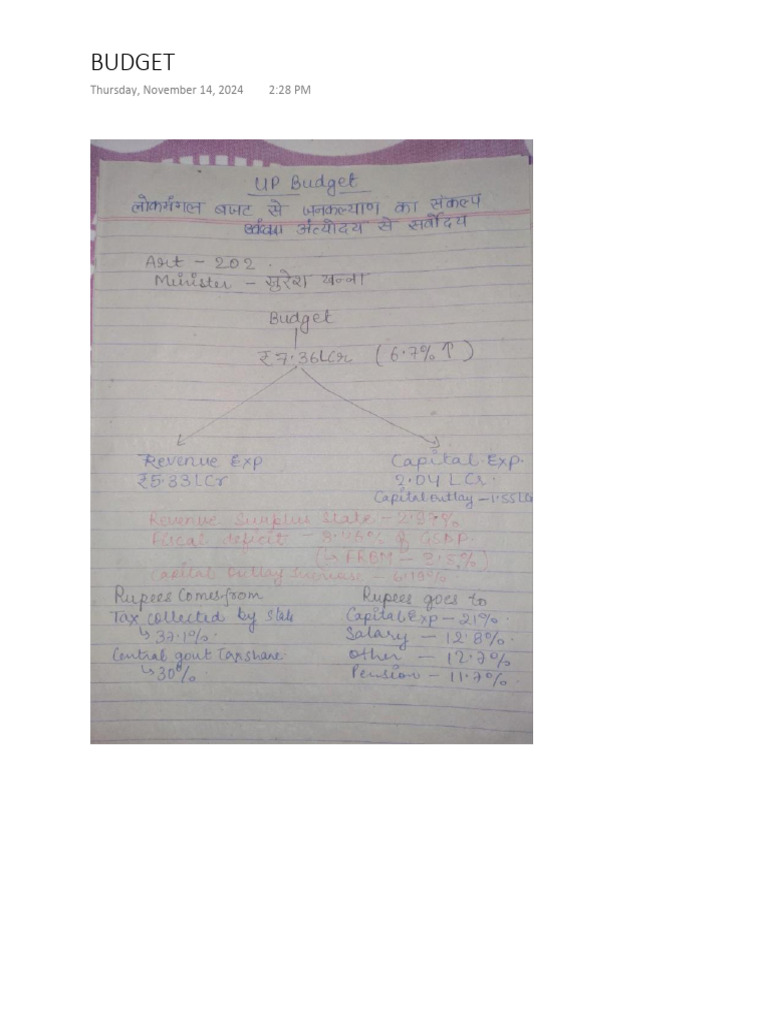 BUDGET
Thursday, November 14, 2024 2:28 PM
UP Budget
लोकमंगल बजट से जनकल्याण का संकल्प
अंत्योदय से सर्वोदय
Art - 202.
Minister - सुरेश खन्ना
Budget
₹7.36LCr (6.7%↑)
Revenue Exp Capital Exp.
₹5.33LCr 2.04 LCr.
Capital outlay - 1.55LCr
Revenue Surplus State - 2.97%
Fiscal deficit - of GSDP.
(↳ FRBM - 3.5%)
Capital Outlay Increase -
Rupees Comes from Rupees goes to
Tax collected by State Capital Exp - 21%
↳ 37.1%. Salary - 12.8%.
Central govt Tax share. Other - 12.7%
↳ 30% Pension - 11.7%.